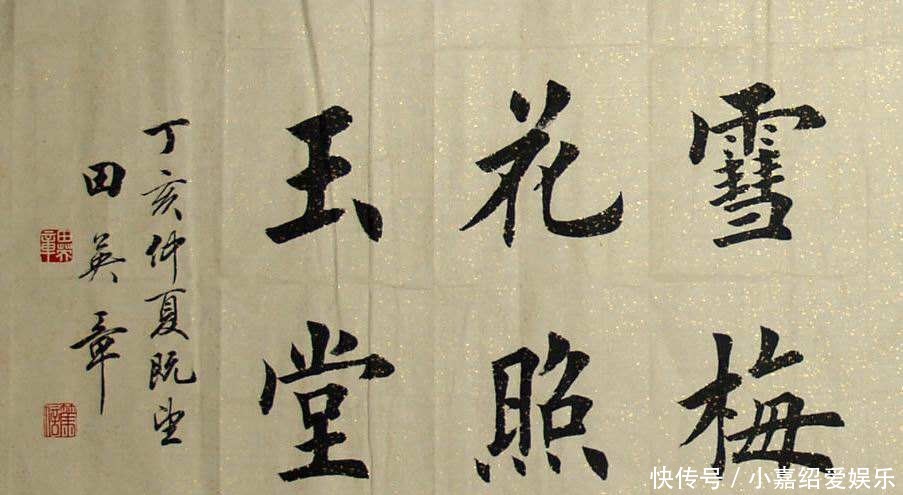 䨮梅
花照
玉堂
丁亥仲夏既望
田英章
田英章
快传号 / 小嘉绍爱娱乐